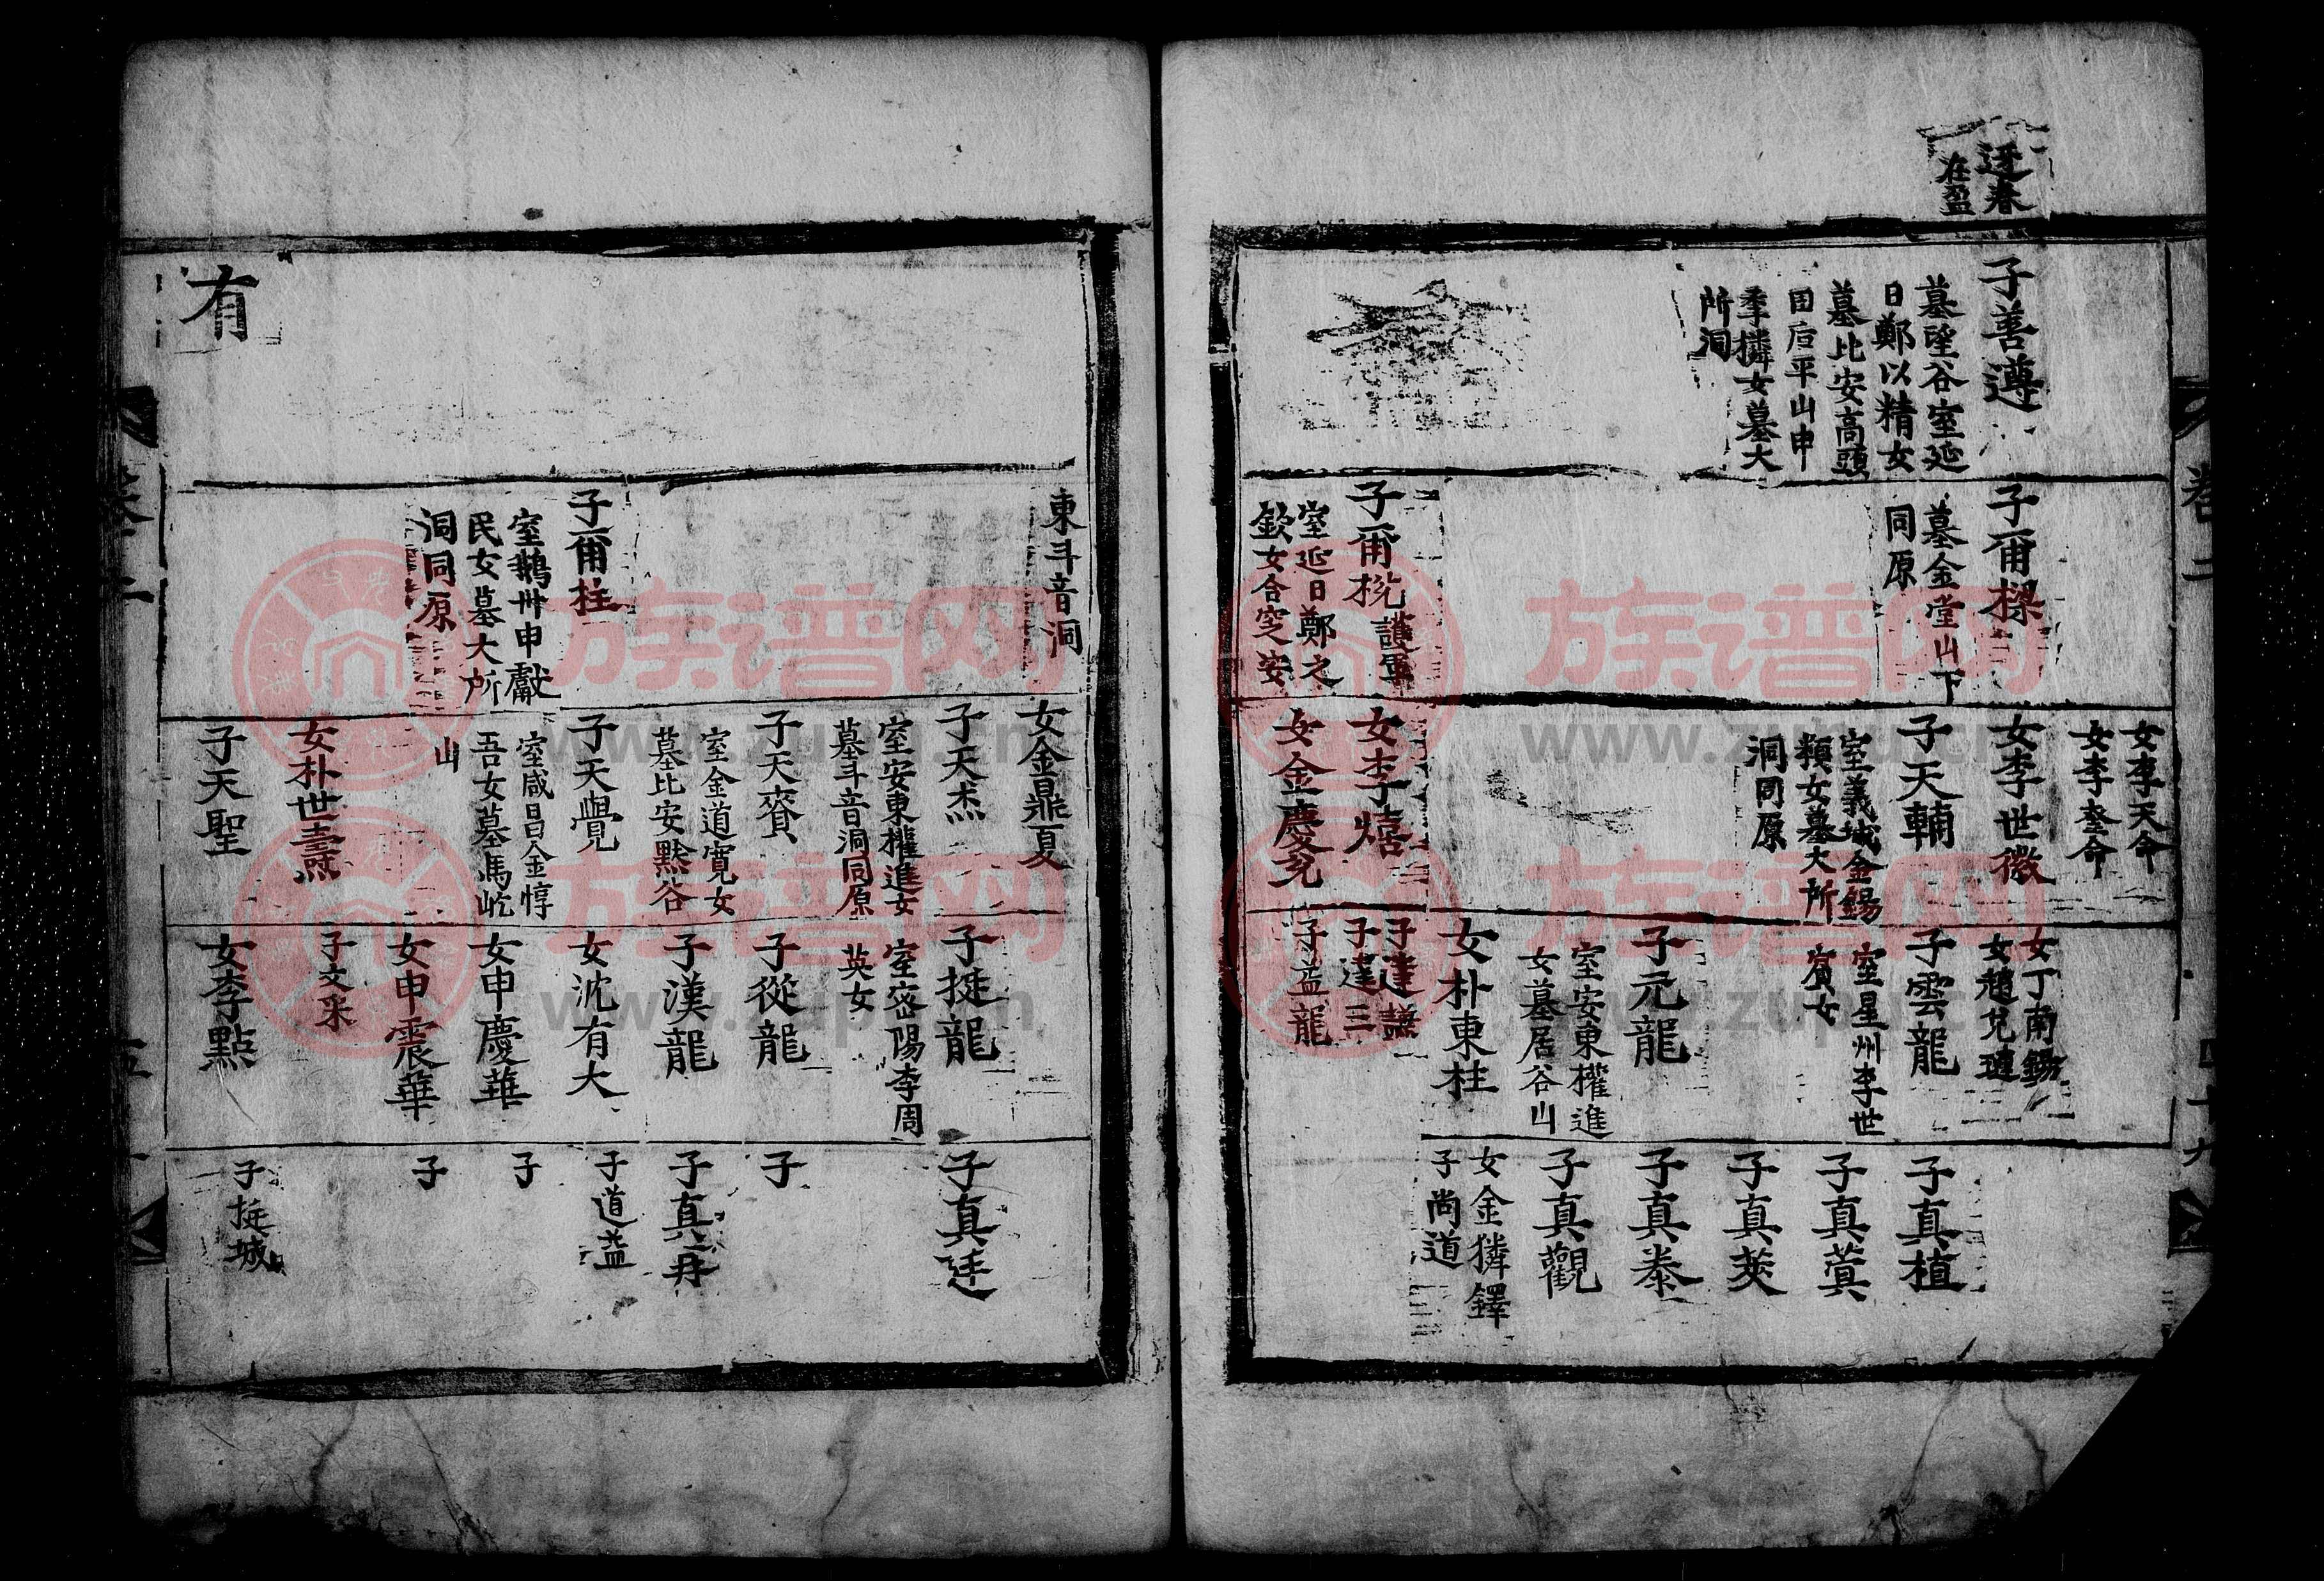 迓春
在盈
子善遵
墓望谷室延
日鄭以精女
墓比安高頭
田后平山申
季擠女墓大
所洞
子爾樑
墓金堂山下
同原
子爾梲護軍
室延日鄭之
欽女合窆安
女李天命
女李奎命
女李世徽
子天輔
室義城金錫
類女墓大所
洞同原
女李熺
女金慶兌
女丁南錫
女趙兌璉
子雲龍
室星州李世
賓女
子元龍
室安東權進
女墓居谷山
女朴東柱
子達謙
子達三
子益龍
子真植
子真蓂
子真莢
子真泰
子真觀
女金擠鐸
子尚道
卷二
四十九
東斗音洞
子爾柱
室鵝州申獻
民女墓大所
洞同原
女金鼎夏
子天杰
室安東權進女
墓斗音洞同原
子天賚
室金道寛女
墓比安㸃谷
子天覺
室咸昌金惇
吾女墓馬屹
山
女朴世燾
子天聖
子挺龍
室密陽李周
英女
子從龍
子漢龍
女沈有大
女申慶華
女申震華
子文采
女李點
子真廷
子
子真冉
子道益
子
子
子挺城
有
族谱网
www.zupu.cn
族谱网
www.zupu.cn
族谱网
www.zupu.cn
族谱网
www.zupu.cn